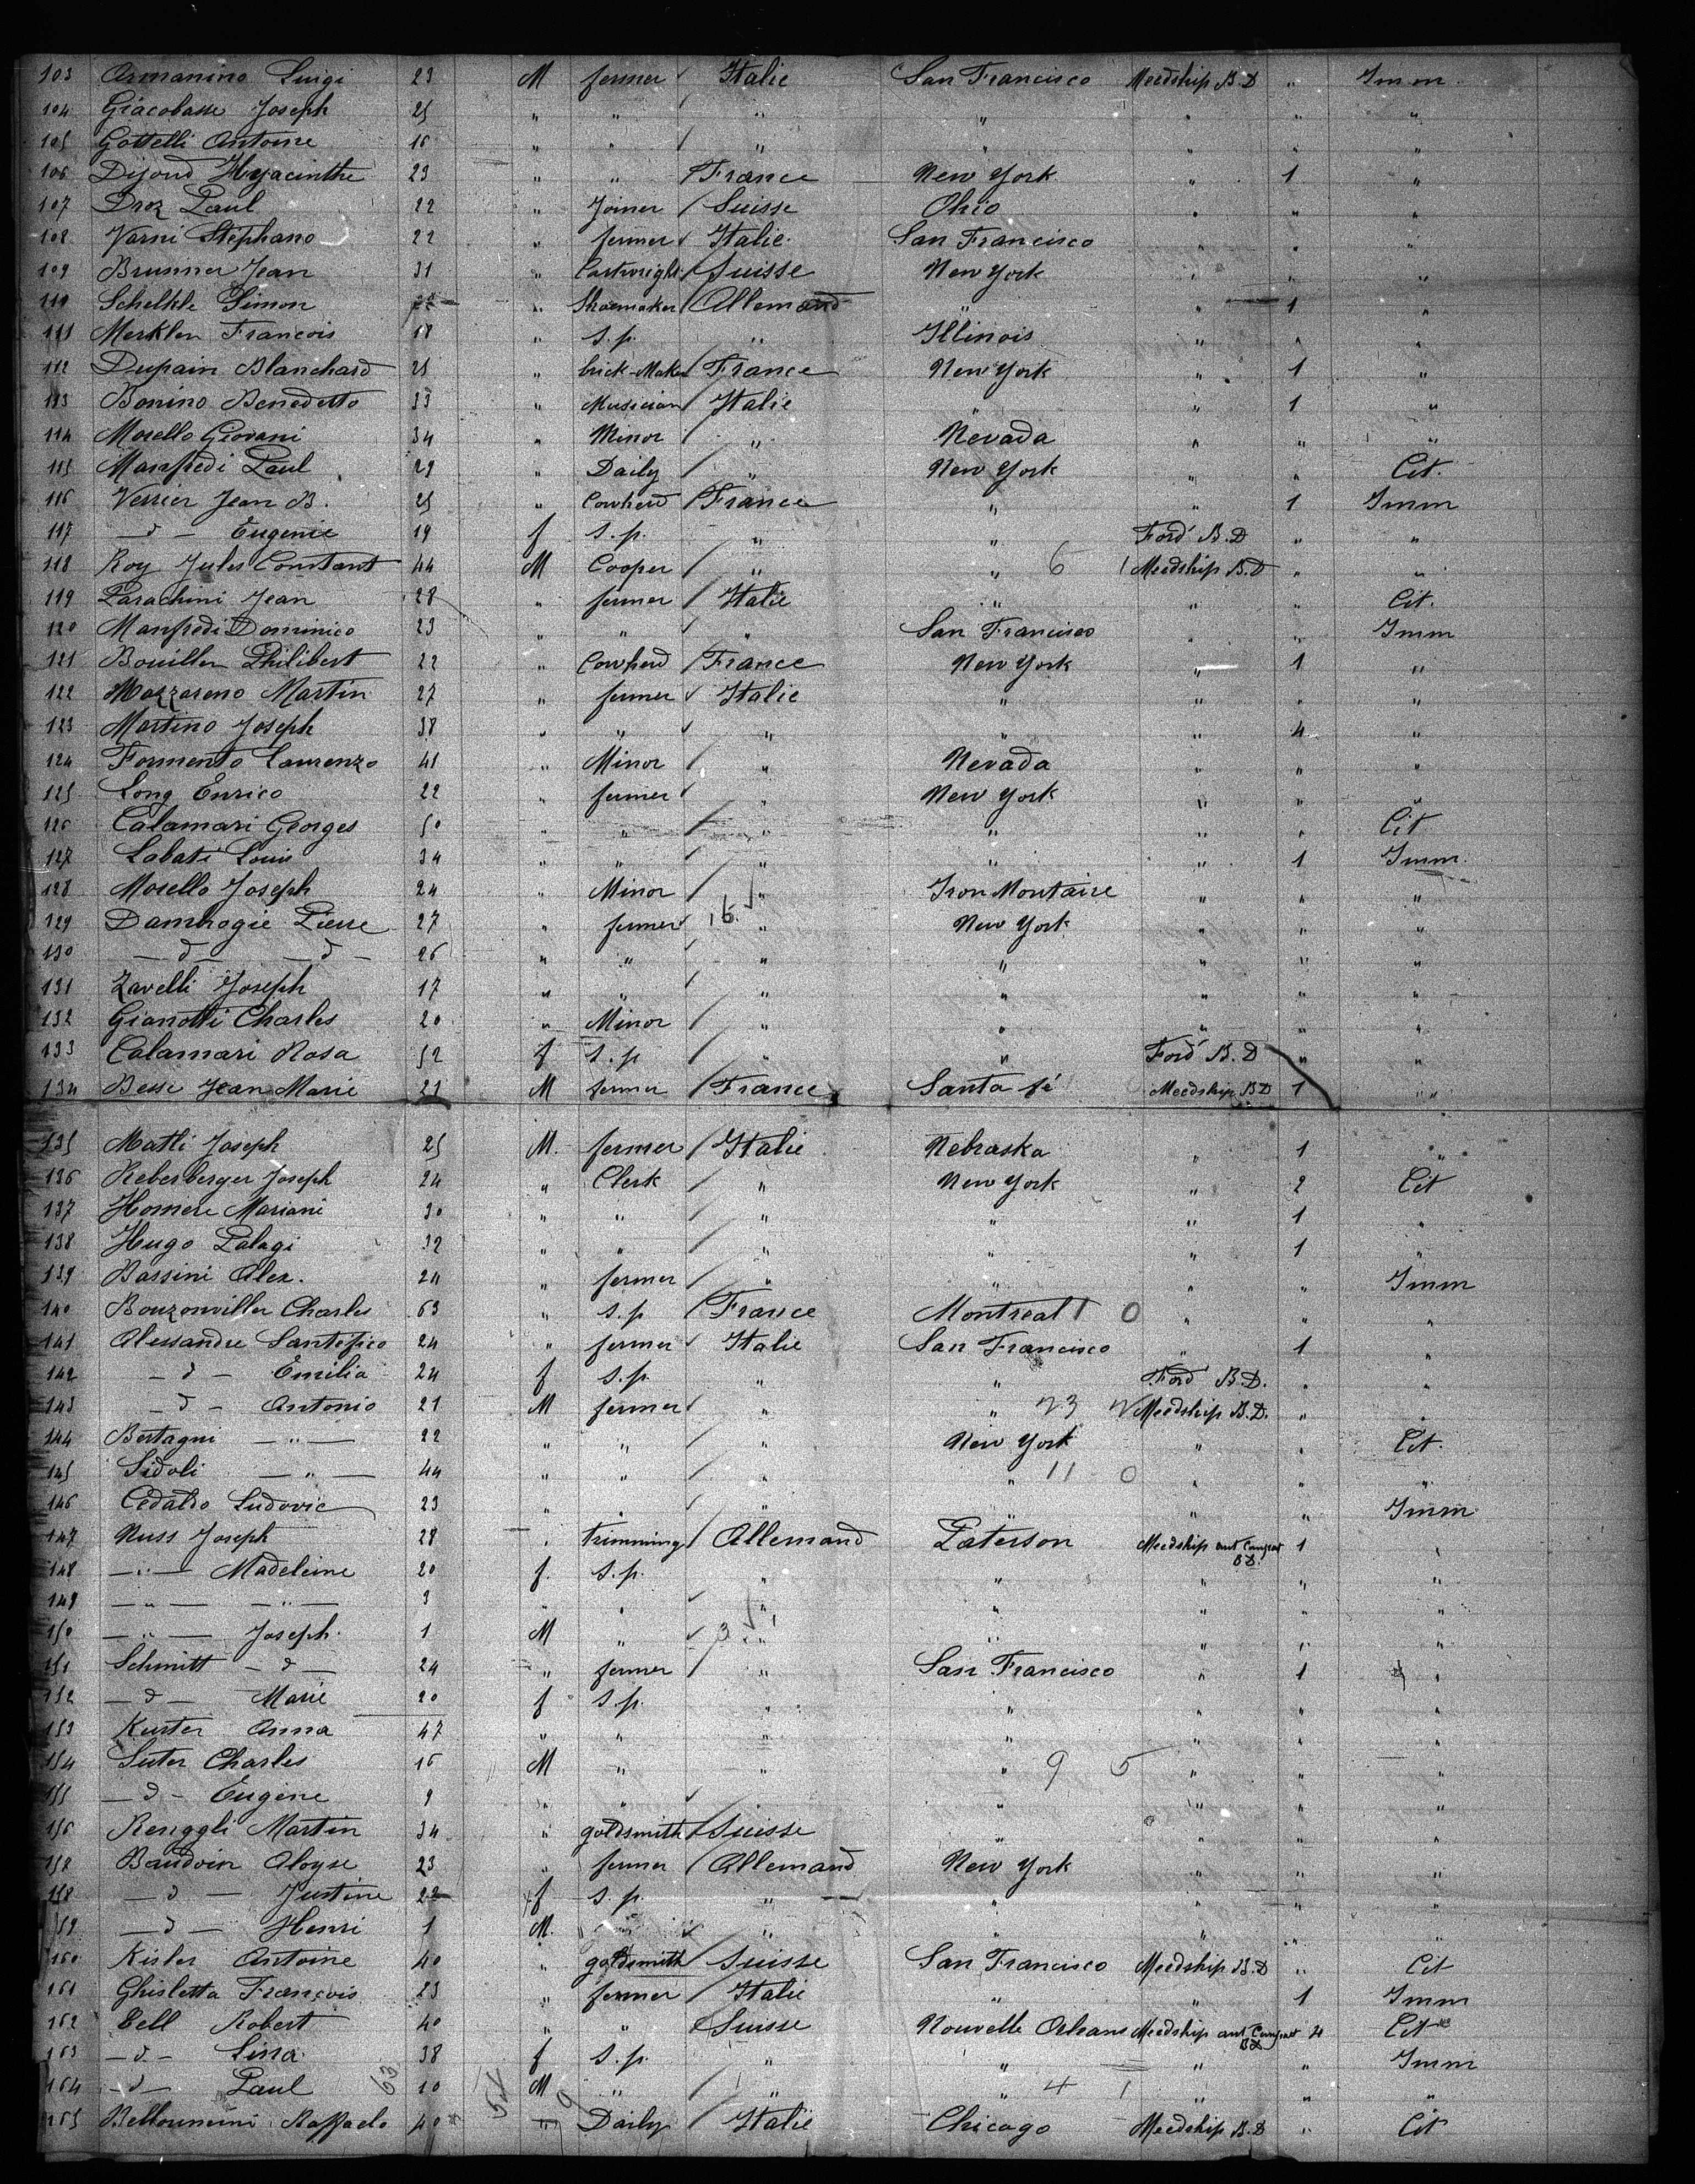 103 Armanino Luigi 23 M fermer Italie San Francisco Meedship B.D " Imm.
104 Giacobasse Joseph 25 " " " " " " "
105 Gottelli Antoine 16 " " " " " " "
106 Dijoud Hyacinthe 23 " " France New York " 1 "
107 Droz Paul 22 " Joiner Suisse Ohio " " "
108 Varni Stephano 22 " fermer Italie San Francisco " " "
109 Brunner Jean 31 " Cartwright Suisse New York " " "
110 Schelkle Simon " Shoemaker Allemand " " 1 "
111 Merklen Francois 18 " s.p. " Illinois " " "
112 Dupain Blanchard 25 " brick-Maker France New York " 1 "
113 Bonino Benedetto 33 " Musician Italie " " 1 "
114 Morello Giovani 34 " Minor " Nevada " " "
115 Manfredi Paul 29 " Daily " New York " " Cit.
116 Verrier Jean B. 25 " Cowherd France " " 1 Imm
117 — d — Eugenie 19 f s.p. " " Ford B.D " "
118 Roy Jules Constant 44 M Cooper " " 6 1 Meedship B.D " "
119 Parachini Jean 28 " fermer Italie " " " Cit.
120 Manfredi Dominico 23 " " " San Francisco " " Imm
121 Bouiller Philibert 22 " Cowherd France New York " 1 "
122 Mazzareno Martin 27 " fermer Italie " " " "
123 Martino Joseph 38 " " " " " 4 "
124 Formento Laurenzo 41 " Minor " Nevada " " "
125 Long Enrico 22 " fermer " New York " " "
126 Calamari Georges 50 " " " " " " Cit
127 Labati Louis 34 " " " " " 1 Imm.
128 Morello Joseph 24 " Minor " Iron Montaire " " "
129 Dambrogie Pierre 27 " fermer 16 " New York " " "
130 — d — — d — 26 " " " " " " "
131 Zavelli Joseph 17 " " " " " " "
132 Gianotti Charles 20 " Minor " " " " "
133 Calamari Rosa 52 f s.p " " Ford B.D " "
134 Besse Jean Marie 21 M fermer France Santa fé Meedship BD 1 "
135 Matli Joseph 25 M. fermer Italie Nebraska " 1 "
136 Reberberger Joseph 24 " Clerk " New York " 2 Cit
137 Homere Mariani 30 " " " " " 1 "
138 Hugo Palagi 32 " " " " " 1 "
139 Bassini Alex. 24 " fermer " " " " Imm
140 Bouzonviller Charles 63 " s.p France Montreal 1 0 " " "
141 Alessandre Santefico 24 " fermer Italie San Francisco " 1 "
142 — d — Emilia 24 f s.p. " " Ford B.D. " "
143 — d — Antonio 21 M fermer " " 23 Meedship B.D. " "
144 Bertagni — " — 22 " " " New York " " Cit.
145 Sidoli — " — 44 " " " " 11 0 " " "
146 Cedaldo Ludovic 23 " " " " " " Imm.
147 Nuss Joseph 28 " trimming Allemand Paterson Meedship ant Compart B.D. 1 "
148 — " — Madeleine 20 f. s.p. " " " " "
149 — " — — " — 3 " " " " " " "
150 — " — Joseph. 1 M " 3 " " " " "
151 Schmitt — d — 24 " fermer " San Francisco " 1 "
152 — d — Marie 20 f s.p. " " " " "
153 Kuster Anna 47 " " " " " " "
154 Suter Charles 16 M " " " 9 5 " " "
155 — d — Eugène 9 " " " " " " "
156 Renggli Martin 34 " goldsmith Suisse " " " "
158 Baudoin Aloyse 23 " fermer Allemand New York " " "
158 — d — Justine 22 f s.p. " " " " "
159 — d — Henri 1 M. " " " " " "
160 Kisler Antoine 40 " goldsmith Suisse San Francisco Meedship B.D " Cit
161 Ghisletta François 23 " fermer Italie " " 1 Imm
162 Cell Robert 40 " " Suisse Nouvelle Orleans Meedship ant Compart BD 4 Cit
163 — d — Lina 38 f s.p. " " " " Imm
164 — d — Paul 63 10 54 M 9 " " " 4 1 " " "
165 Raffaelo 40 " Daily Italie Chicago Meedship B.D " Cit